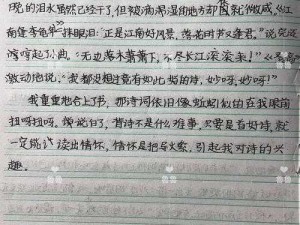 现的泪水虽然已经干了，但被滴滴湿的地方却
南逢李龟年》抹眼泪："正是江南好风景，落花时节又逢君"说完还
哼起了小曲。"无边落木萧萧下，不尽长江滚滚来！"
激动地说，"我都没想过竟有如此好的诗，妙呀，妙呀！"
我重重地合上书，那诗词依旧像蚯蚓似的在我眼前
扭呀扭呀。说白了，背诗不是什么难事，只要是看好诗，就
一定能读出情怀，情怀是把导火索，引起我对诗的兴
趣。